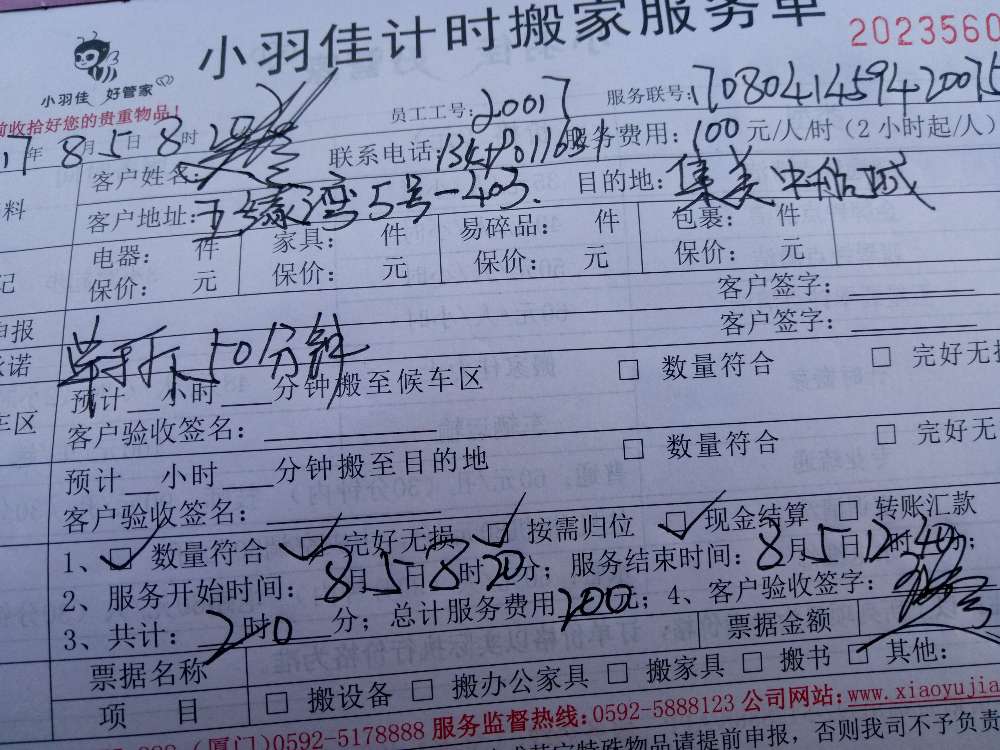 小羽佳计时搬家服务单
2023560
小羽佳 好管家
前收拾好您的贵重物品！
员工工号：20017 服务联号：1708041459420075
17年8月5日8时20
联系电话： 服务费用：100元/人/时（2小时起/人）
客户姓名：
客户地址：五缘湾5号一403. 目的地：集美中航城
电器： 件 家具： 件 易碎品： 件 包裹： 件
保价： 元 保价： 元 保价： 元 保价： 元
客户签字：
客户签字：
申报
单拆50分钟
预计__小时____分钟搬至候车区 □ 数量符合 □ 完好无损
客户验收签名：
预计__小时____分钟搬至目的地 □ 数量符合 □ 完好无
客户验收签名：
1、☑ 数量符合 ☑ 完好无损 ☑ 按需归位 ☑ 现金结算 □ 转账汇款
2、服务开始时间：8月5日8时20分；服务结束时间：8月5日12时40分；
3、共计：2时0分；总计服务费用200元；4、客户验收签字：
票据名称 票据金额
项 目 □ 搬设备 □ 搬办公家具 □ 搬家具 □ 搬书 □ 其他：
（厦门）0592-5178888 服务监督热线：0592-5888123 公司网站：www.xiaoyujia
特殊物品请提前申报，否则我司不予负责